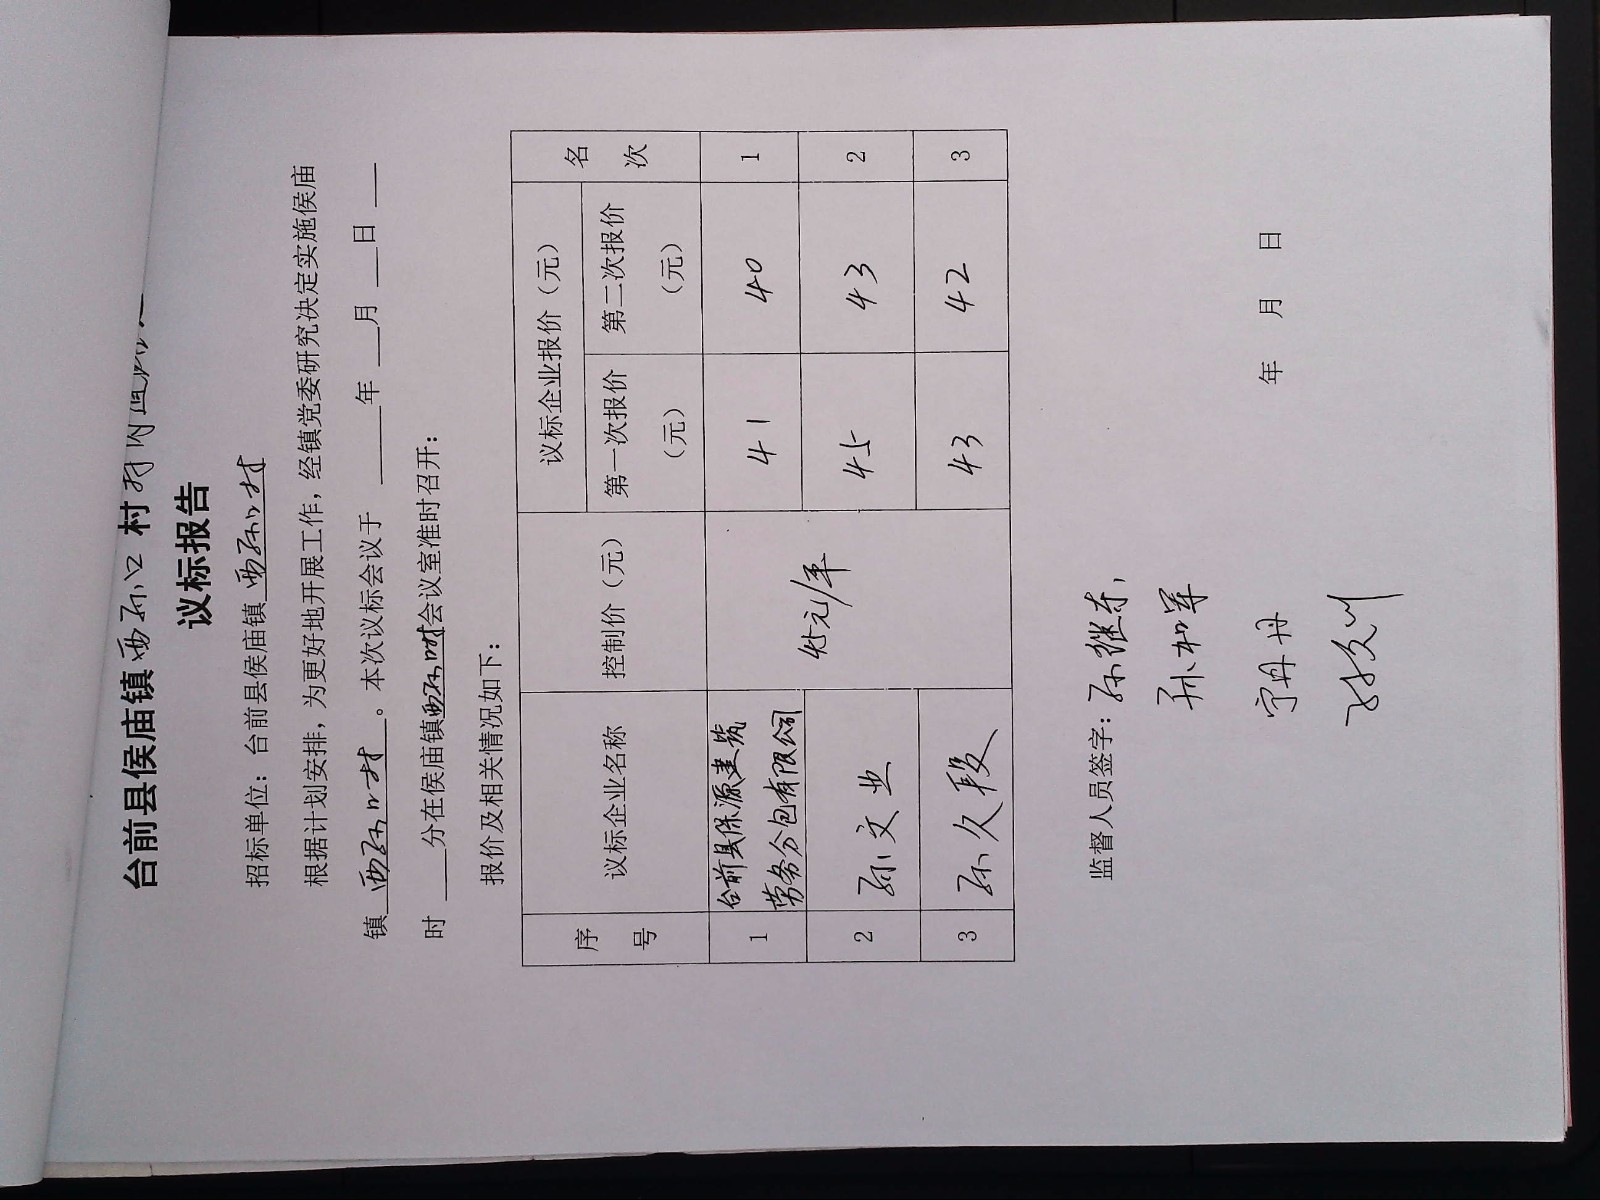 台前县侯庙镇西孙口村村内道
议标报告
招标单位：台前县侯庙镇西孙口村
根据计划安排，为更好地开展工作，经镇党委研究决定实施侯庙
镇西孙口村。本次议标会议于 年 月 日
时 分在侯庙镇西孙口村会议室准时召开：
报价及相关情况如下：
序号 议标企业名称 控制价（元） 议标企业报价（元） 名次
第一次报价（元） 第二次报价（元）
1 台前县保源建筑劳务分包有限公司 45元/平 41 40 1
2 孙文业 45 43 2
3 孙久段 43 42 3
监督人员签字：孙继东
孙和军
丹丹
年 月 日